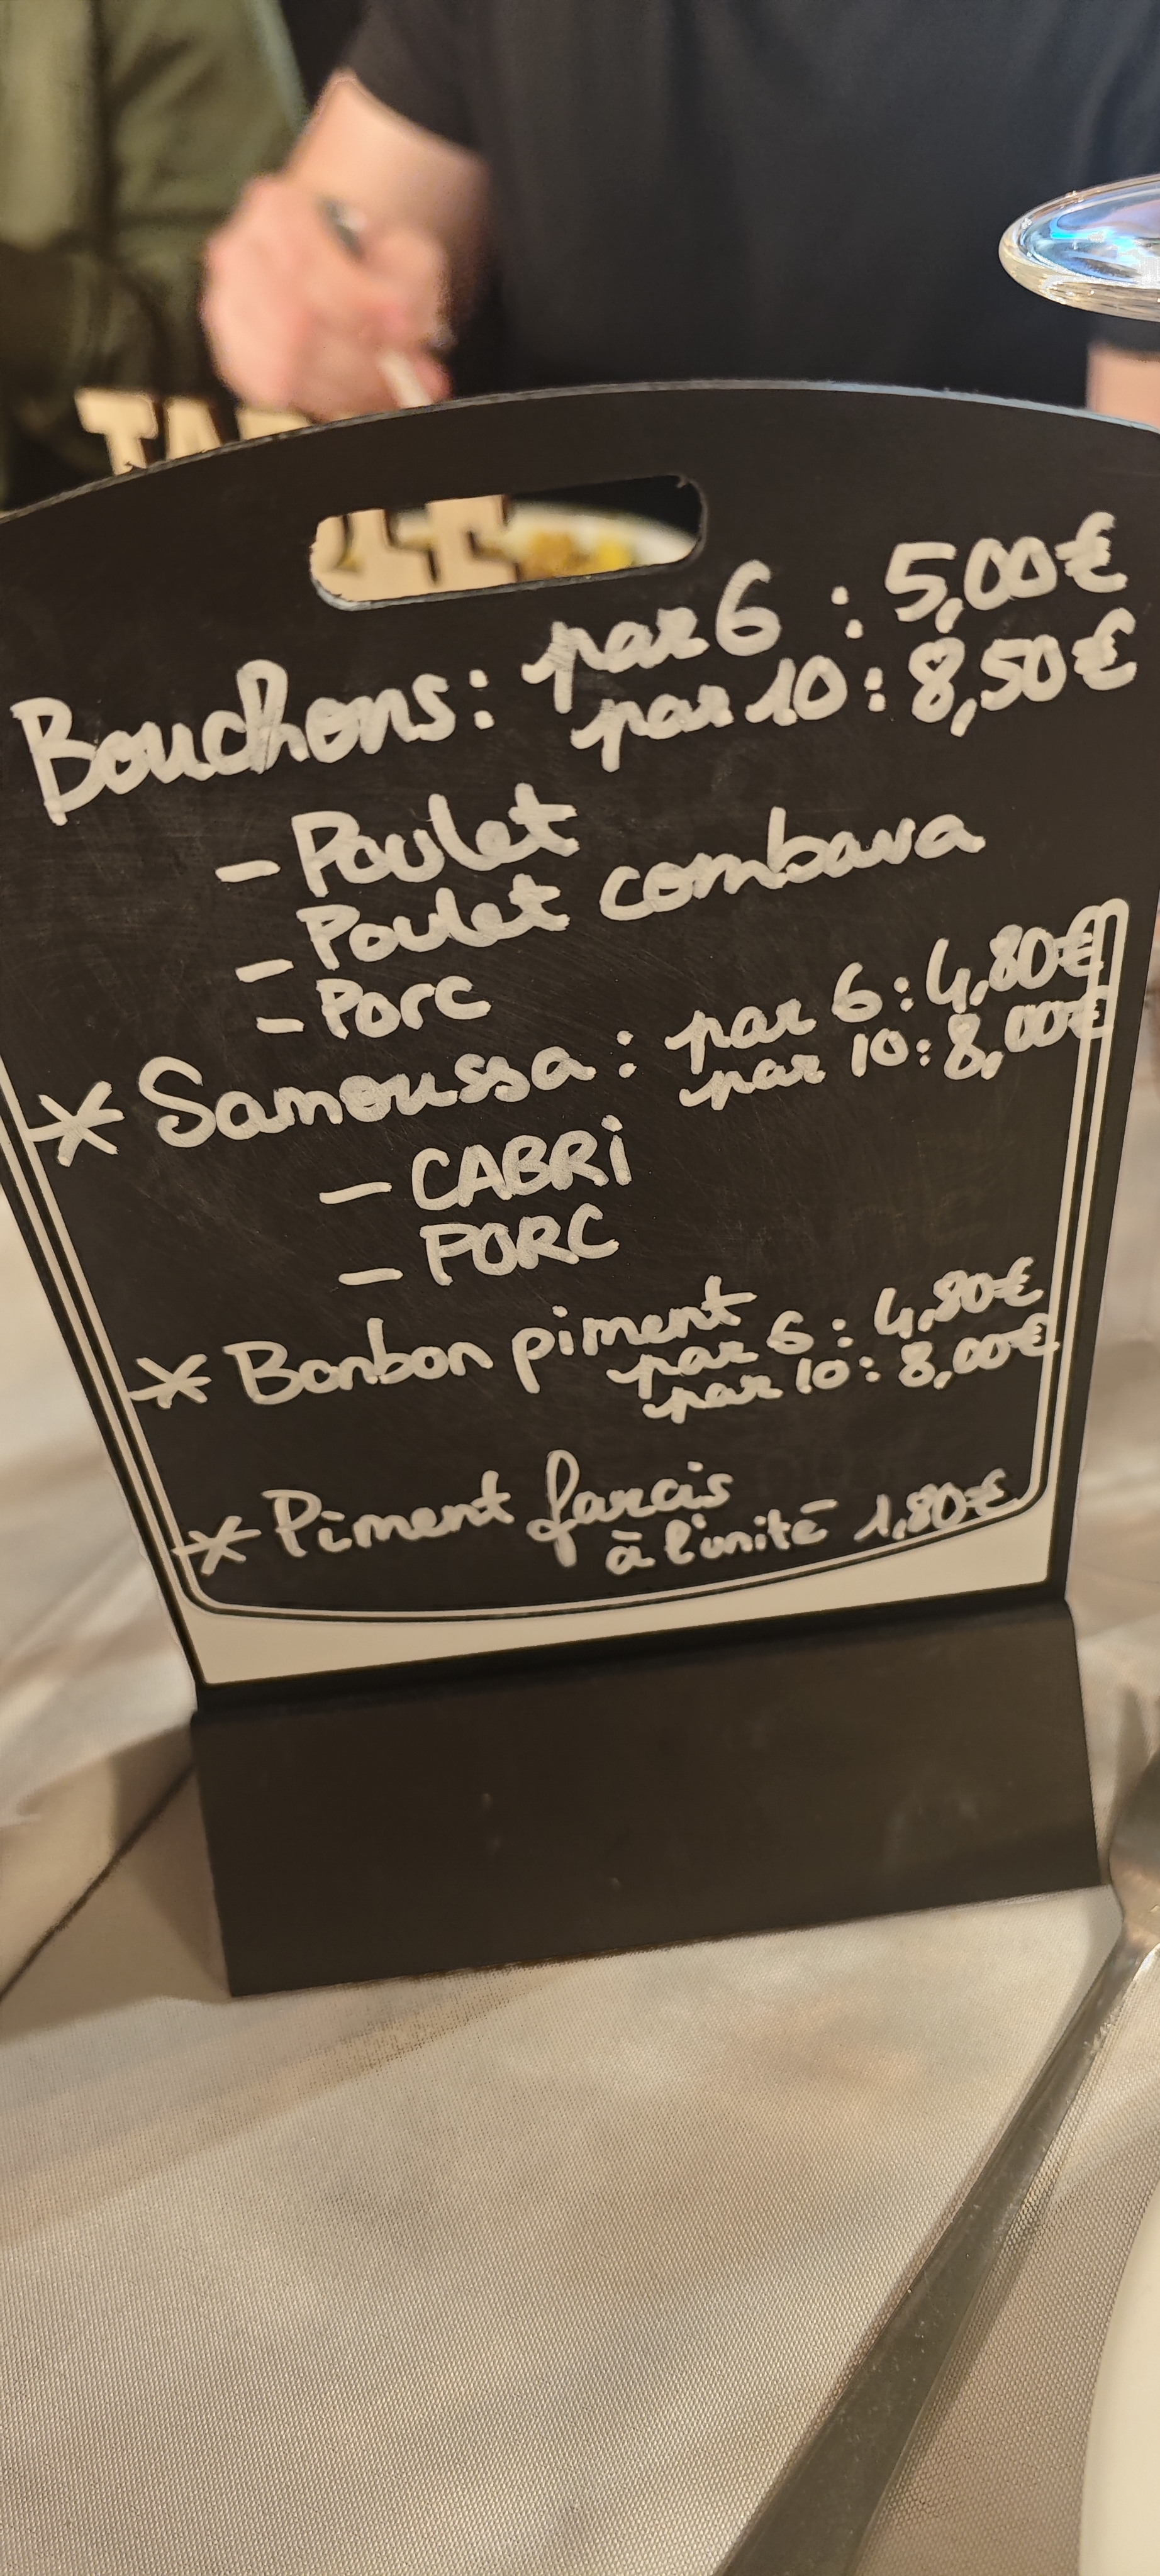 Bouchons : par 6 : 5,00€
par 10 : 8,50€
- Poulet
- Poulet combava
- Porc
* Samoussa : par 6 : 4,80€
par 10 : 8,00€
- CABRi
- PORC
* Bonbon piment
par 6 : 4,80€
par 10 : 8,00€
* Piment farcis
à l'unité 1,80€